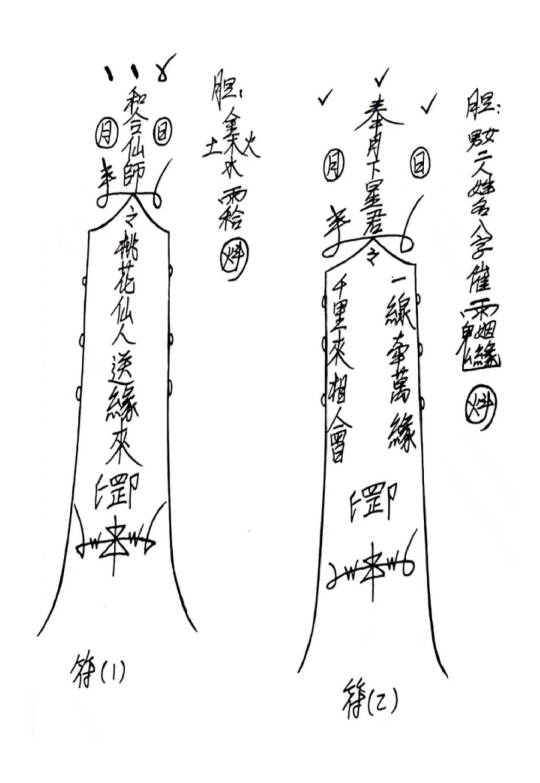 和合仙師
月
日
令
桃花仙人送緣來
罡印
胆:
金木水
土
火
符(1)
奉月下星君
月
日
令
一線牽萬緣
千里來相會
罡印
胆:
男女二人姓名八字催
姻緣
符(2)